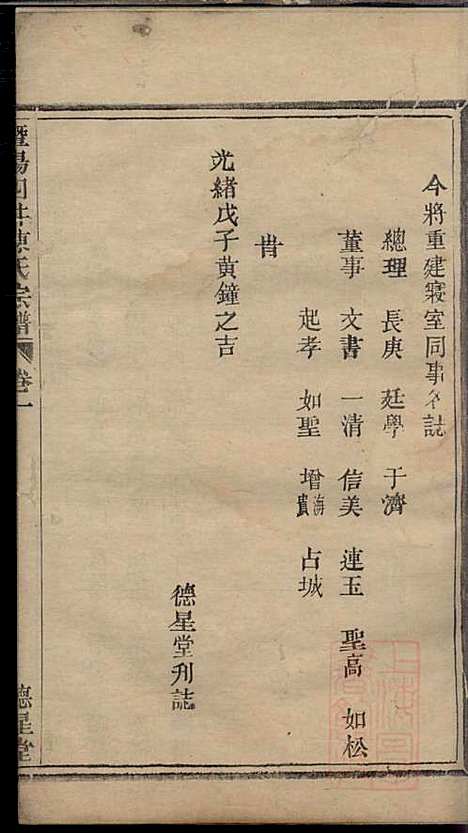 今將重建寢室同事名誌
總理 長庚 廷學 于濟
董事 文書 一清 信美 連玉 聖高 如松
起孝 如聖 增海 占城
旹
光緒戊子黃鐘之吉
德星堂刋誌
暨陽開井陳氏宗譜 卷一 德星堂
上海